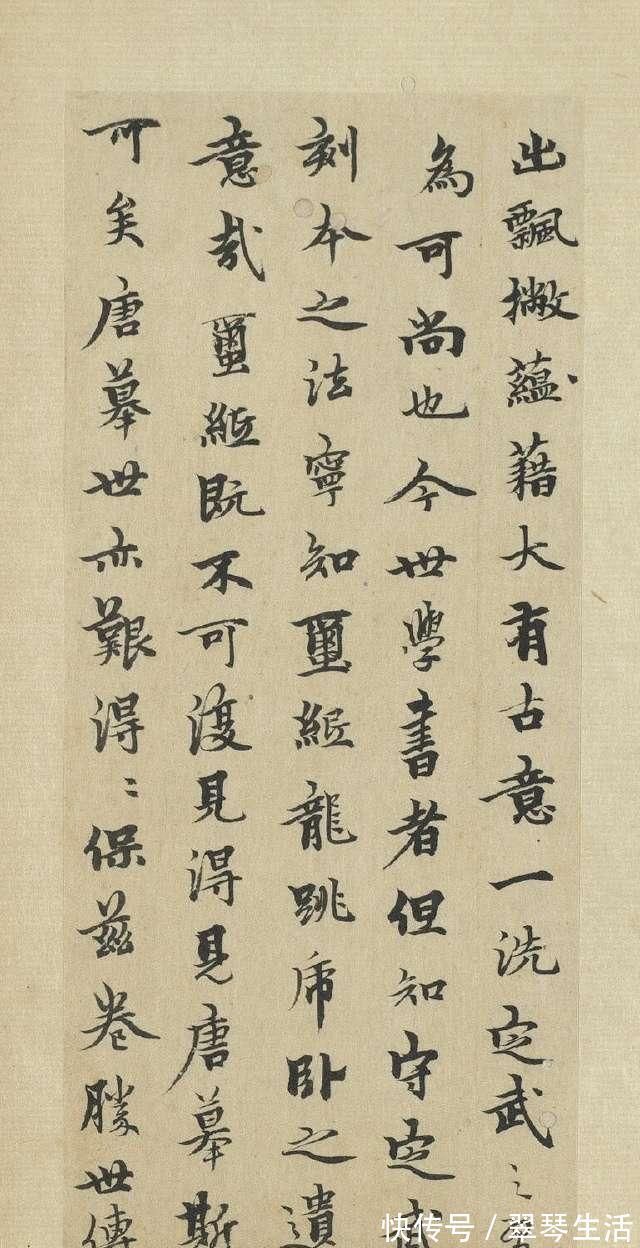 出飄撇蘊藉大有古意一洗定武之
為可尚也今世學書者但知守定武
刻本之法寧知蠒紙龍跳虎卧之遺
意哉蠒紙既不可復見得見唐摹斯
可矣唐摹世亦艱得〻保兹卷勝世傳
快传号/翠琴生活